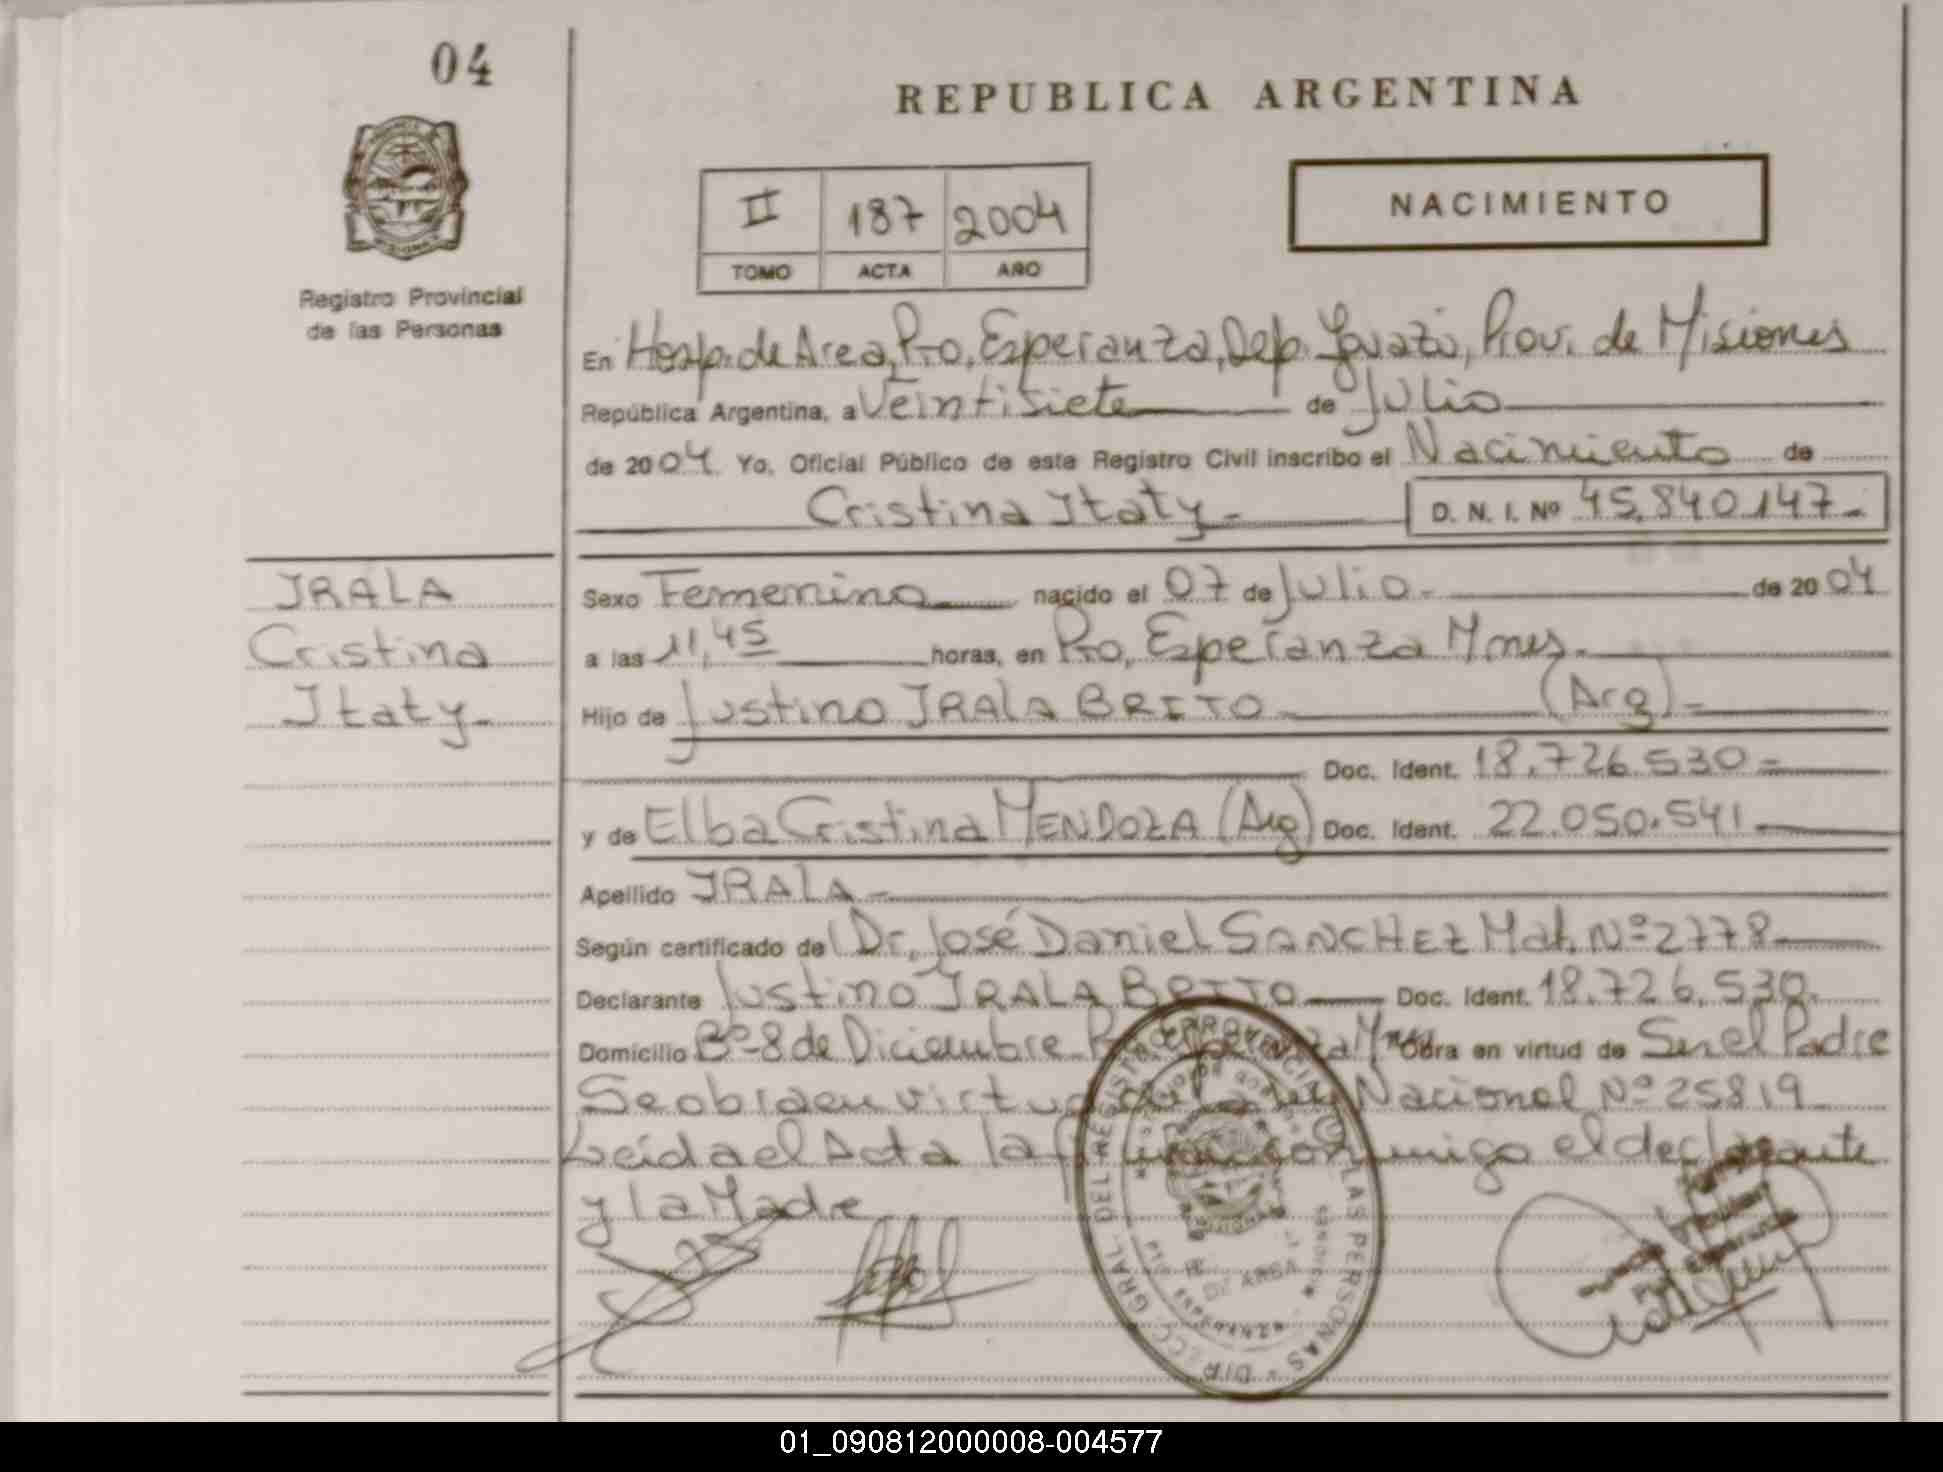 04
REPUBLICA ARGENTINA
II 187 2004
TOMO ACTA AÑO
NACIMIENTO
Registro Provincial
de las Personas
En Hosp. de Area, Pto, Esperanza, Dep. Iguazú, Prov. de Misiones
República Argentina, a Veintisiete de Julio
de 2004 Yo, Oficial Público de este Registro Civil inscribo el Nacimiento de
Cristina Itaty - D. N. I. Nº 45.840.147-
IRALA
Cristina
Itaty-
Sexo Femenino nacido el 07 de Julio - de 2004
a las 11,45 horas, en Pto, Esperanza Mnes.
Hijo de Justino IRALA BRITO (Arg)-
Doc. Ident. 18.726.530-
y de Elba Cristina MENDOZA (Arg) Doc. Ident. 22.050.541
Apellido IRALA-
Según certificado de Dr, José Daniel SANCHEZ Mat. Nº 2778
Declarante Justino IRALA BRITO Doc. Ident. 18.726.530.
Domicilio Bº-8 de Diciembre Obra en virtud de Ser el Padre
Se obra en virtud de la Ley Nacional Nº 25819
Leida el Acta la firman conmigo el declarante
y la Madre
DIRECC. GRAL. DEL REGISTRO PROVINCIAL DE LAS PERSONAS
DE AREA
01_090812000008-004577